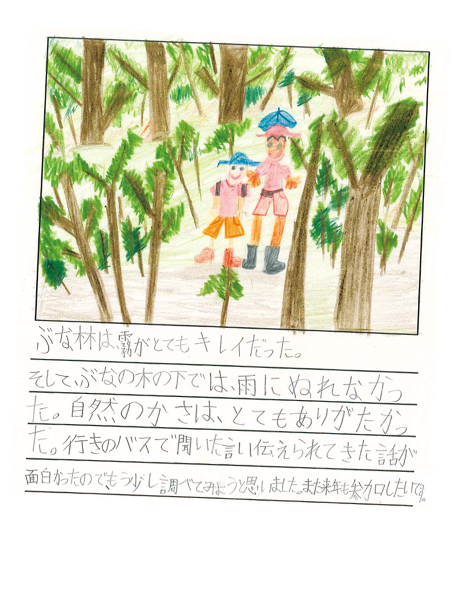 ぶな林は、霧がとてもキレイだった。
そして、ぶなの木の下では、雨にぬれなかっ
た。自然のかさは、とてもありがたかっ
た。行きのバスで聞いた言い伝えられてきた話が
面白かったので、もう少し調べてみようと思いました。また来年も参加したいです。